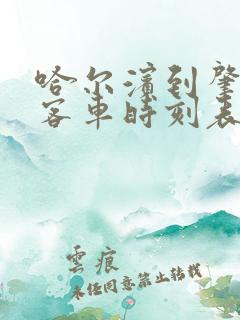 哈尔滨到肇
客车时刻表
雲痕
未经同意禁止转载